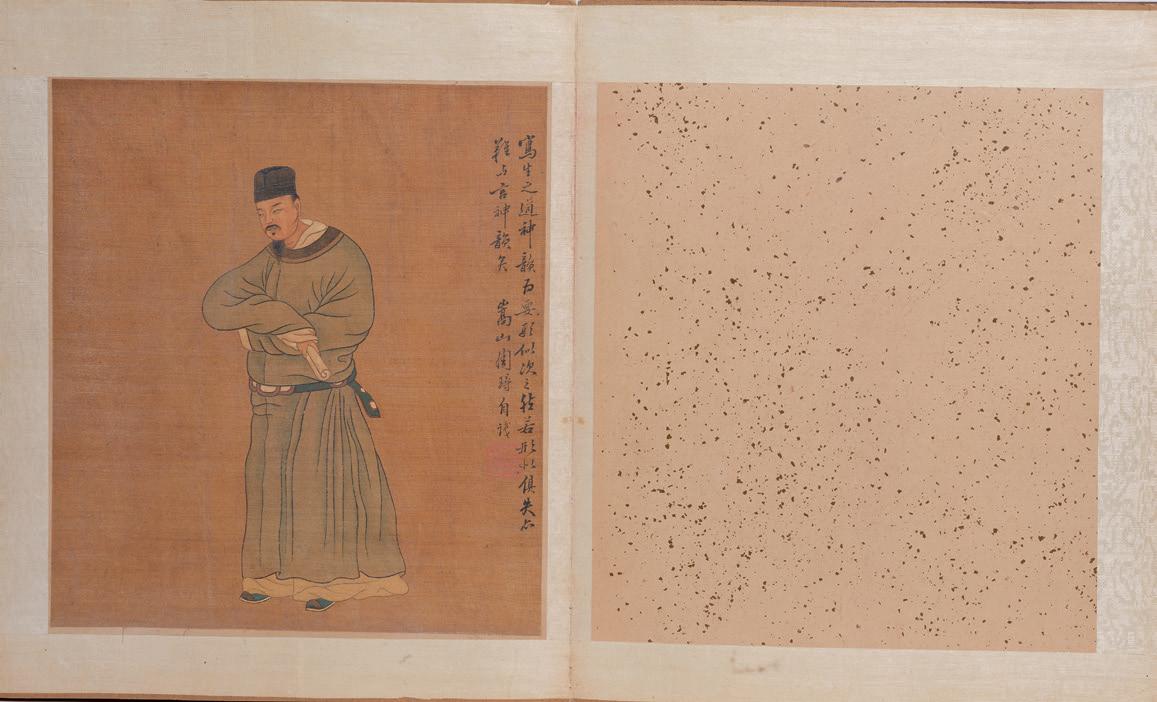 寫生之道神韻为要形似次之然若形似俱失亦
難与言神韻矣 嵩山周璕自識